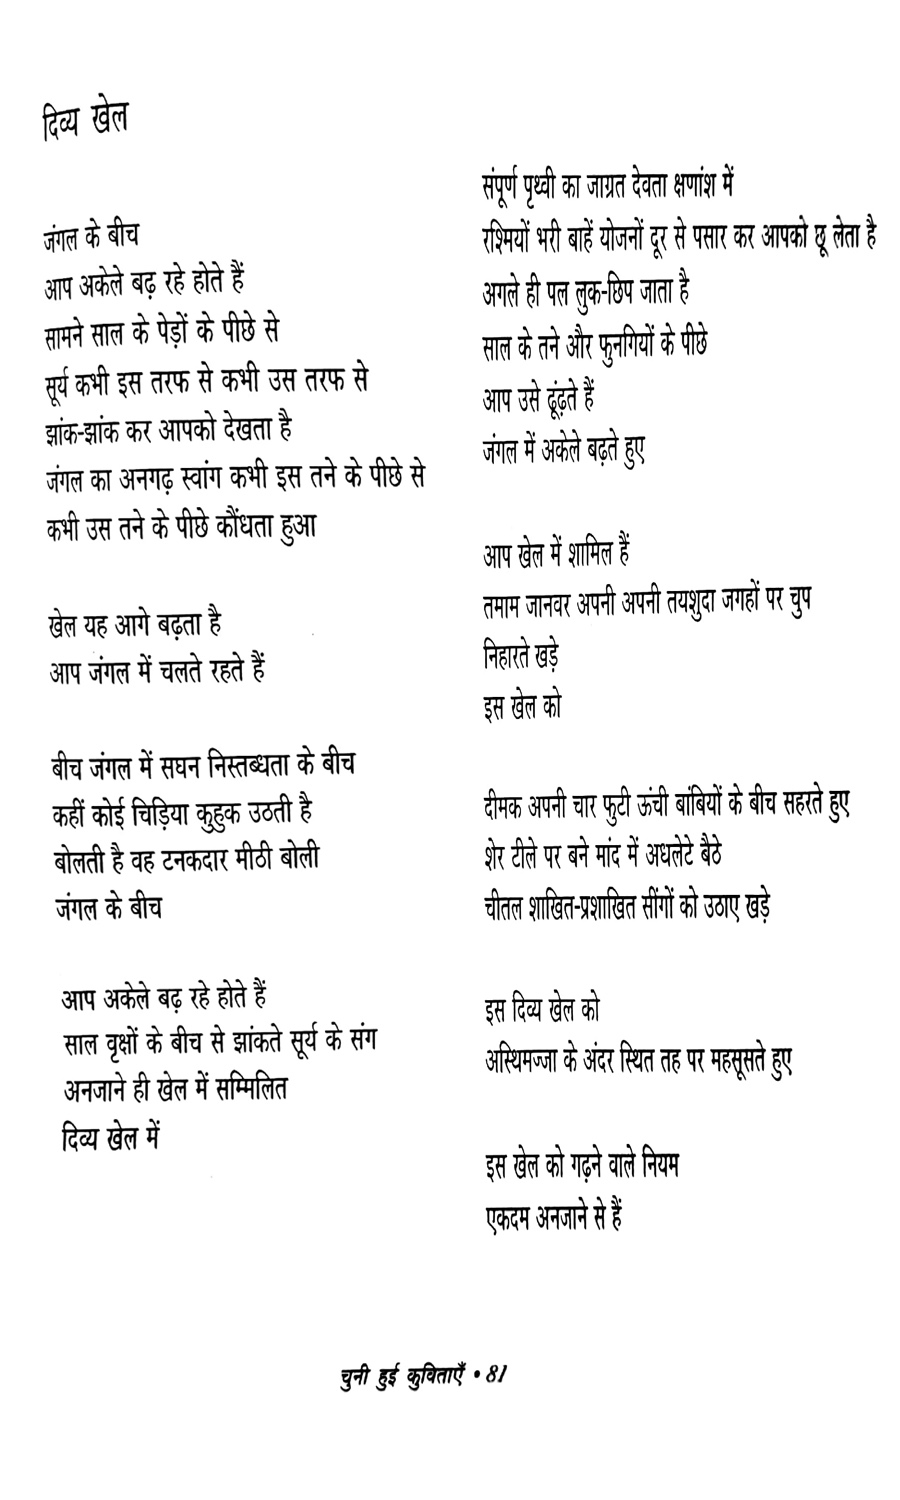 दिव्य खेल
जंगल के बीच
आप अकेले बढ़ रहे होते हैं
सामने साल के पेड़ों के पीछे से
सूर्य कभी इस तरफ से कभी उस तरफ से
झांक-झांक कर आपको देखता है
जंगल का अनगढ़ स्वांग कभी इस तने के पीछे से
कभी उस तने के पीछे कौंधता हुआ
खेल यह आगे बढ़ता है
आप जंगल में चलते रहते हैं
बीच जंगल में सघन निस्तब्धता के बीच
कहीं कोई चिड़िया कुहुक उठती है
बोलती है वह टनकदार मीठी बोली
जंगल के बीच
आप अकेले बढ़ रहे होते हैं
साल वृक्षों के बीच से झांकते सूर्य के संग
अनजाने ही खेल में सम्मिलित
दिव्य खेल में
संपूर्ण पृथ्वी का जाग्रत देवता क्षणांश में
रश्मियों भरी बाहें योजनों दूर से पसार कर आपको छू लेता है
अगले ही पल लुक-छिप जाता है
साल के तने और फुनगियों के पीछे
आप उसे ढूंढ़ते हैं
जंगल में अकेले बढ़ते हुए
आप खेल में शामिल हैं
तमाम जानवर अपनी अपनी तयशुदा जगहों पर चुप
निहारते खड़े
इस खेल को
दीमक अपनी चार फुटी ऊंची बांबियों के बीच सहरते हुए
शेर टीले पर बने मांद में अधलेटे बैठे
चीतल शाखित-प्रशाखित सींगों को उठाए खड़े
इस दिव्य खेल को
अस्थिमज्जा के अंदर स्थित तह पर महसूसते हुए
इस खेल को गढ़ने वाले नियम
एकदम अनजाने से हैं
चुनी हुई कुविताएँ • 81